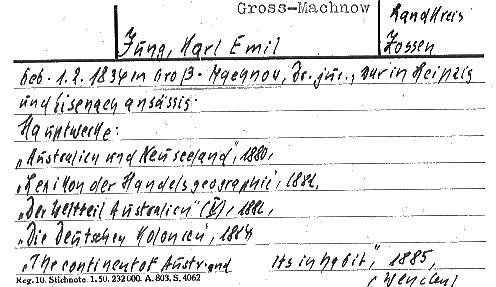 Gross-Machnow
Landkreis
Jung, Karl Emil
Zossen
Geb. 1.2.1836 in Groß-Machnow, Dr. jur., war in Leipzig
und Eisenach ansässig.
Hauptwerke:
„Australien und Neuseeland", 1880,
„Lexikon der Handelsgeographie", 1882,
„Der Weltteil Australien" (V), 1882,
„Die Deutschen Kolonien", 1884
„The continent of Austr. and its inhabit.", 1885,
Reg. 10. Stichnote. 1. 50. 232 000. A. 803. S. 4062